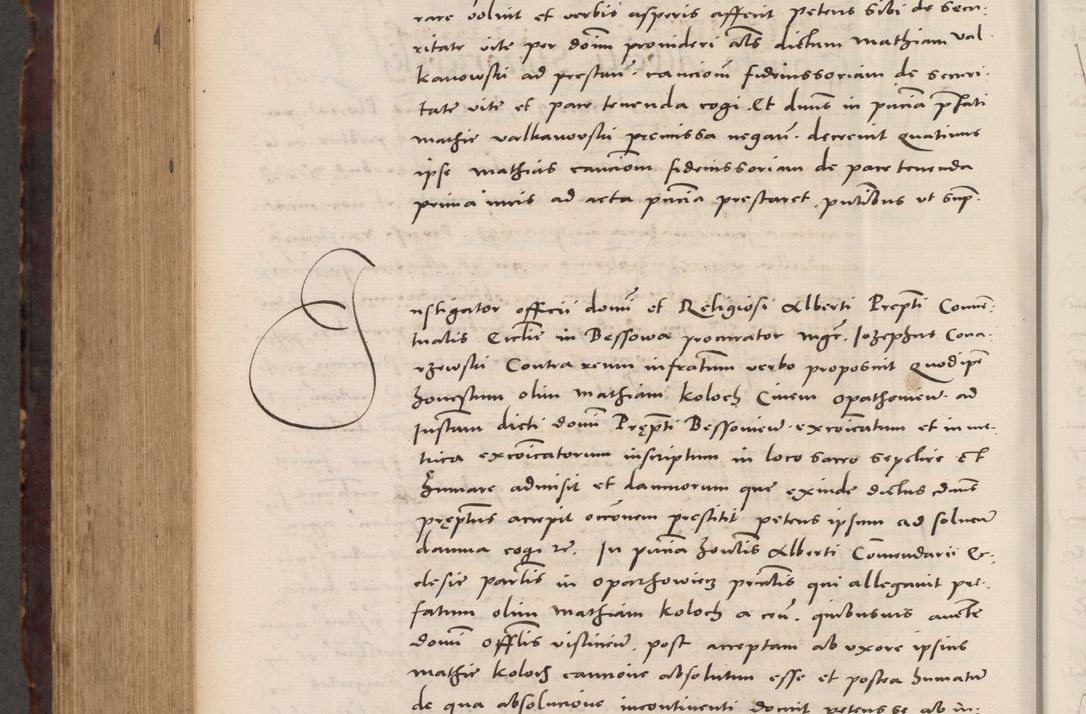 rare voluit et verbis asperis affecit petens sibi de secu-
ritate vite per doim provideri als dictum Mathiam Val-
kanowski ad prestan. caucionem fideiussoriam de securi-
tate vite et pace tenenda cogi. Et dnus in pncia pfati
Mathie Valkanowski premissa negan. decrevit quatinus
ipse Mathias caucionem fideiussoriam de pace tenenda
prima iuris ad acta pncia prestaret. pntibus ut sup.
Instigator officii domi et Religiosi Alberti Prepti Conven-
tualis Ecclie in Bessowa procurator mgr. Iozephus Cona-
rzewski Contra reum infratum verbo proposuit Quod ipse
honestum olim Mathiam Koloch Civem Opathovien. ad
Instam dicti domi Prepti Bessovien. excoicatum et in me-
trica excoicatorum inscriptum in loco sacro sepelire Et
humare admisit et damnorum que exinde dictus dnus
preptus accepit occonem prestitit petens ipsum ad solven
damna cogi rc. In pncia hontis Alberti Comendarii Ec-
clesie partis in Opathowiecz pntis qui allegavit pre-
fatum olim Mathiam Koloch a cen. quibusvis aucte
domi offlis vislicien. post acceptam ab uxore ipsius
Mathie Koloch caucione absolutum esse et postea humatu
de qua absolucione incontinenti domit petens se ab in-